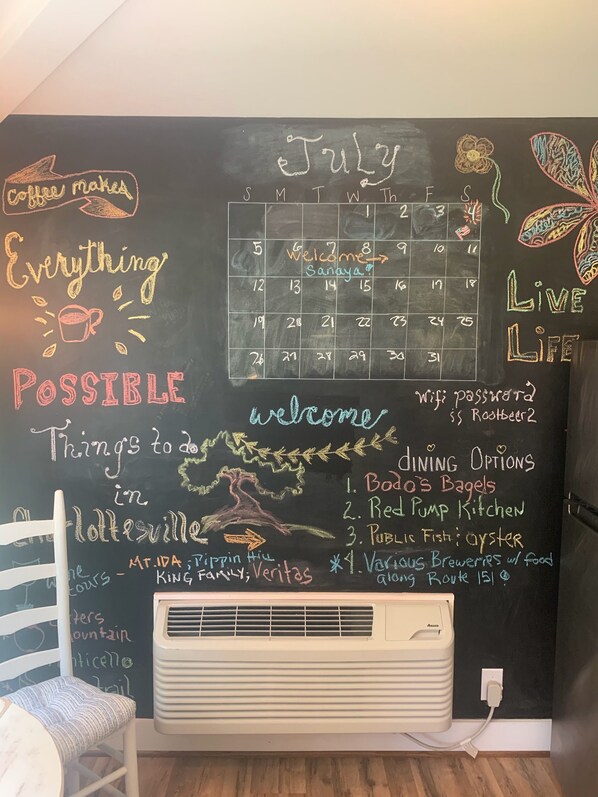 Coffee makes
Everything
POSSIBLE
July
S M T W Th F S
1 2 3 4
5 6 7 8 9 10 11
Welcome
Sanaya
12 13 14 15 16 17 18
19 20 21 22 23 24 25
26 27 28 29 30 31
LIVE
LIFE
wifi password
is Rootbeer2
welcome
Things to do
in
Charlottesville
MT. IDA; Pippin Hill
KING FAMILY; Veritas
DINING OPTIONS
1. Bodo's Bagels
2. Red Pump Kitchen
3. Public Fish; Oyster
*4. Various Breweries w/ food
along Route 151
tours -
ountain
nticello